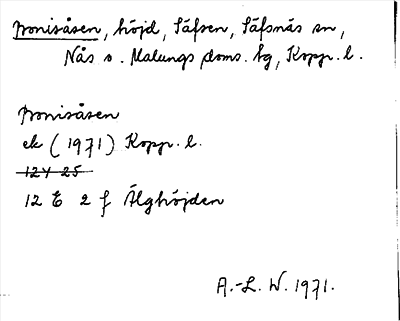 Bronisåsen, höjd, Säfsen, Säfsnäs sn,
Nås o. Malungs doms. hg, Kopp. l.
Bronisåsen
ek (1971) Kopp. l.
12 Y 25
12 E 2 f Älghöjden
A.-L. W. 1971.